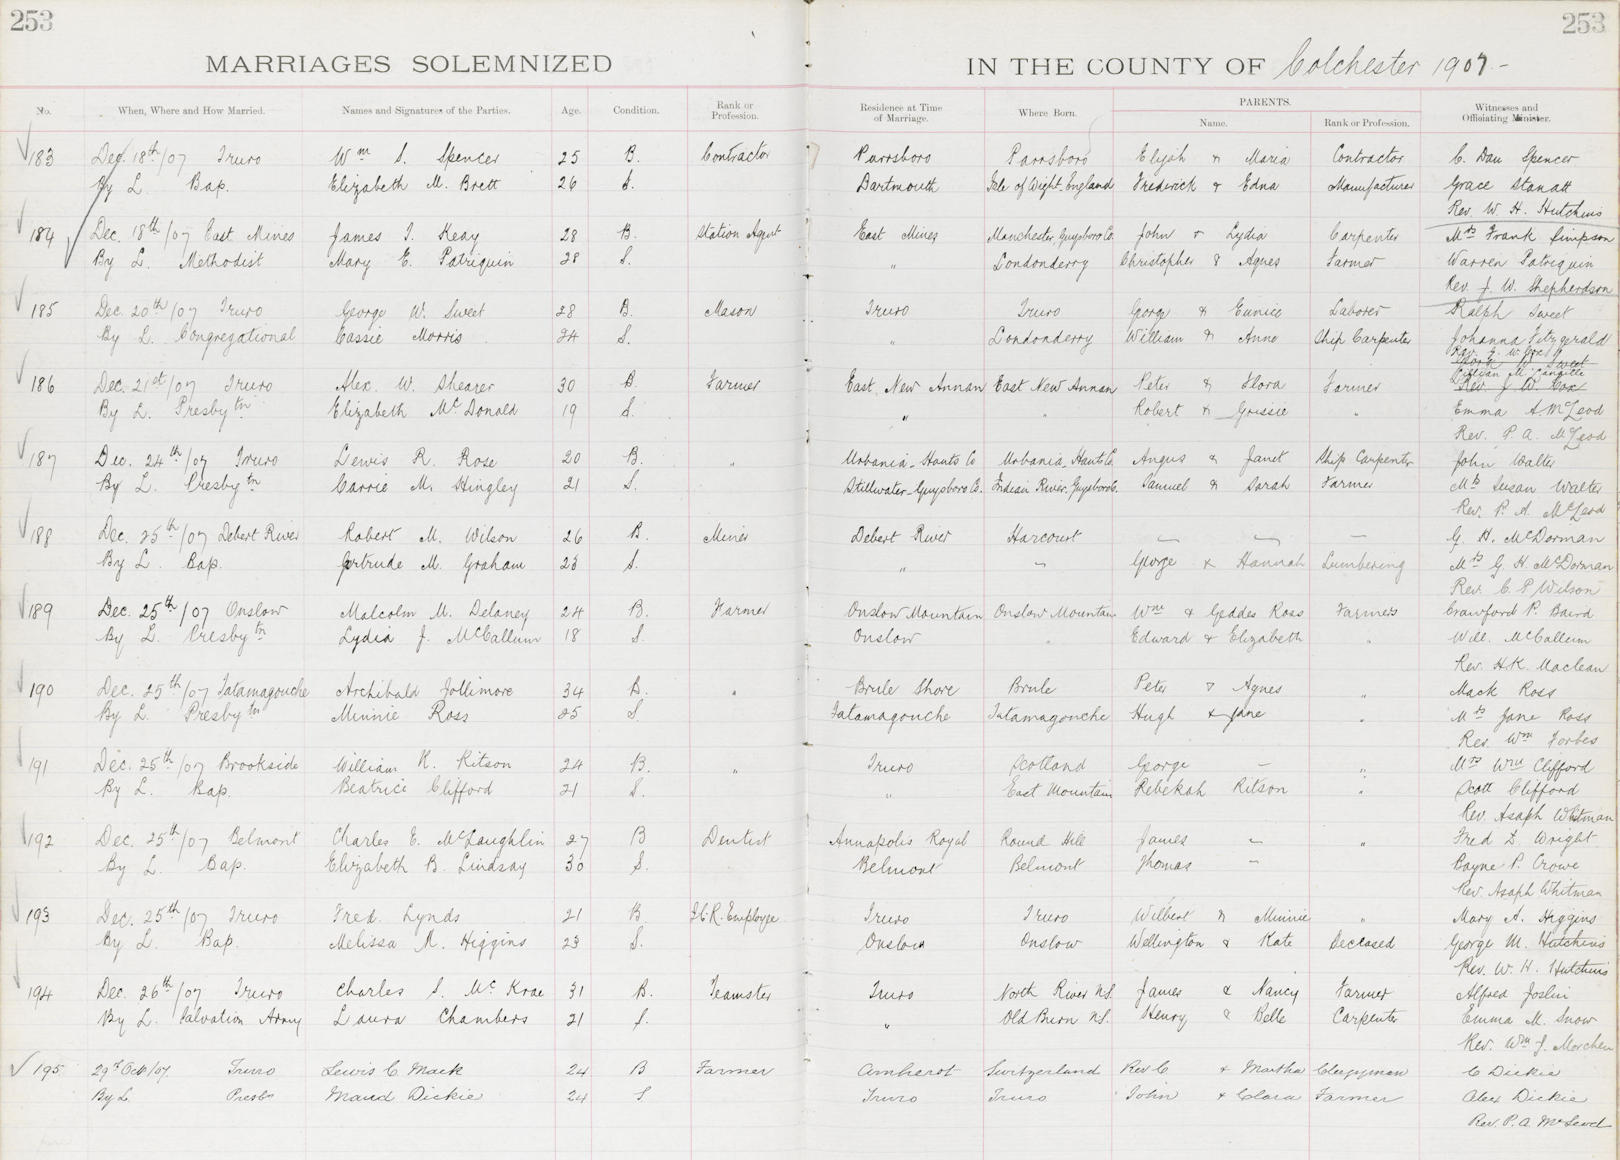 253 253
MARRIAGES SOLEMNIZED IN THE COUNTY OF Colchester 1907-
No. When, Where and How Married. Names and Signatures of the Parties. Age. Condition. Rank or Profession. Residence at Time of Marriage. Where Born. PARENTS. Name. Rank or Profession. Witnesses and Officiating Minister.
183 Dec. 18th/07 Truro Wm S. Spencer 25 B. Contractor Parrsboro Parrsboro Elijah & Maria Contractor C. Dan Spencer
By L. Bap. Elizabeth M. Brett 26 S. Dartmouth Isle of Wight. England Frederick & Edna Manufacturer Grace Stanatt
Rev. W. H. Hutchins
184 Dec. 18th/07 East Mines James I. Keay 28 B. Station Agent East Mines Manchester, Guysboro Co. John & Lydia Carpenter Mrs Frank Simpson
By L. Methodist Mary E. Patriquin 28 S. " Londonderry Christopher & Agnes Farmer Warren Patriquin
Rev. J. W. Shepherdson
185 Dec. 20th/07 Truro George W. Sweet 28 B. Mason Truro Truro George & Eunice Laborer Ralph Sweet
By L. Congregational Cassie Morris 24 S. " Londonderry William & Anne Ship Carpenter Johanna Fitzgerald
Rev. J. W. Cox
186 Dec. 21st/07 Truro Alex. W. Shearer 30 B. Farmer East New Annan East New Annan Peter & Flora Farmer Rev J W Cox
By L. Presbytn Elizabeth McDonald 19 S. " " Robert & Grissie " Emma A. McLeod
Rev. P. A. McLeod
187 Dec. 24th/07 Truro Lewis R. Rose 20 B. " Urbania, Hants Co Urbania, Hants Co. Angus & Janet Ship Carpenter John Walter
By L. Presbytn Carrie M. Hingley 21 S. Stillwater-Guysboro Co. Indian River, Guysboro Co. Samuel & Sarah Farmer Mrs Susan Walter
Rev. P. A. McLeod
188 Dec. 25th/07 Debert River Robert M. Wilson 26 B. Miner Debert River Harcourt — — — G. H. McDorman
By L. Bap. Gertrude M. Graham 23 S. " " George & Hannah Lumbering Mrs G. H. McDorman
Rev. C. P. Wilson
189 Dec. 25th/07 Onslow Malcolm M. Delaney 24 B. Farmer Onslow Mountain Onslow Mountain Wm & Geddes Ross Farmers Crawford P. Baird
By L. Presbytn Lydia J. McCallum 18 S. Onslow " Edward & Elizabeth " Will. McCallum
Rev. H.K. Maclean
190 Dec. 25th/07 Tatamagouche Archibald Jollimore 34 B. " Brule Shore Brule Peter & Agnes " Mack Ross
By L. Presbytn Minnie Ross 25 S. Tatamagouche Tatamagouche Hugh & Jane " Mrs Jane Ross
Rev. Wm Forbes
191 Dec. 25th/07 Brookside William R. Ritson 24 B. " Truro Scotland George — " Mrs Wm Clifford
By L. Bap. Beatrice Clifford 21 S. " East Mountain Rebekah Ritson " Scott Clifford
Rev. Asaph Whitman
192 Dec. 25th/07 Belmont Charles E. McLaughlin 27 B Dentist Annapolis Royal Round Hill James — " Fred L. Wright
By L. Bap. Elizabeth B. Lindsay 30 S. Belmont Belmont Thomas — Bayne P. Crowe
Rev. Asaph Whitman
193 Dec. 25th/07 Truro Fred. Lynds 21 B I.C.R. Employe Truro Truro Wilbert & Minnie " Mary A. Higgins
By L. Bap. Melissa M. Higgins 23 S. Onslow Onslow Wellington & Kate Deceased George M. Hutchins
Rev. W. H. Hutchins
194 Dec. 26th/07 Truro Charles S. McKrae 31 B. Teamster Truro North River N.S. James & Nancy Farmer Alfred Joslin
By L. Salvation Army Laura Chambers 21 S. " Old Burn N.S. Henry & Belle Carpenter Emma M. Snow
Rev. Wm J. Morchen
195 29th Oct/07 Truro Lewis C. Mack 24 B Farmer Amherst Switzerland Rev C & Martha Clergyman C Dickie
By L Presb Maud Dickie 24 S Truro Truro John & Clara Farmer Alex Dickie
Rev. P. A. McLeod